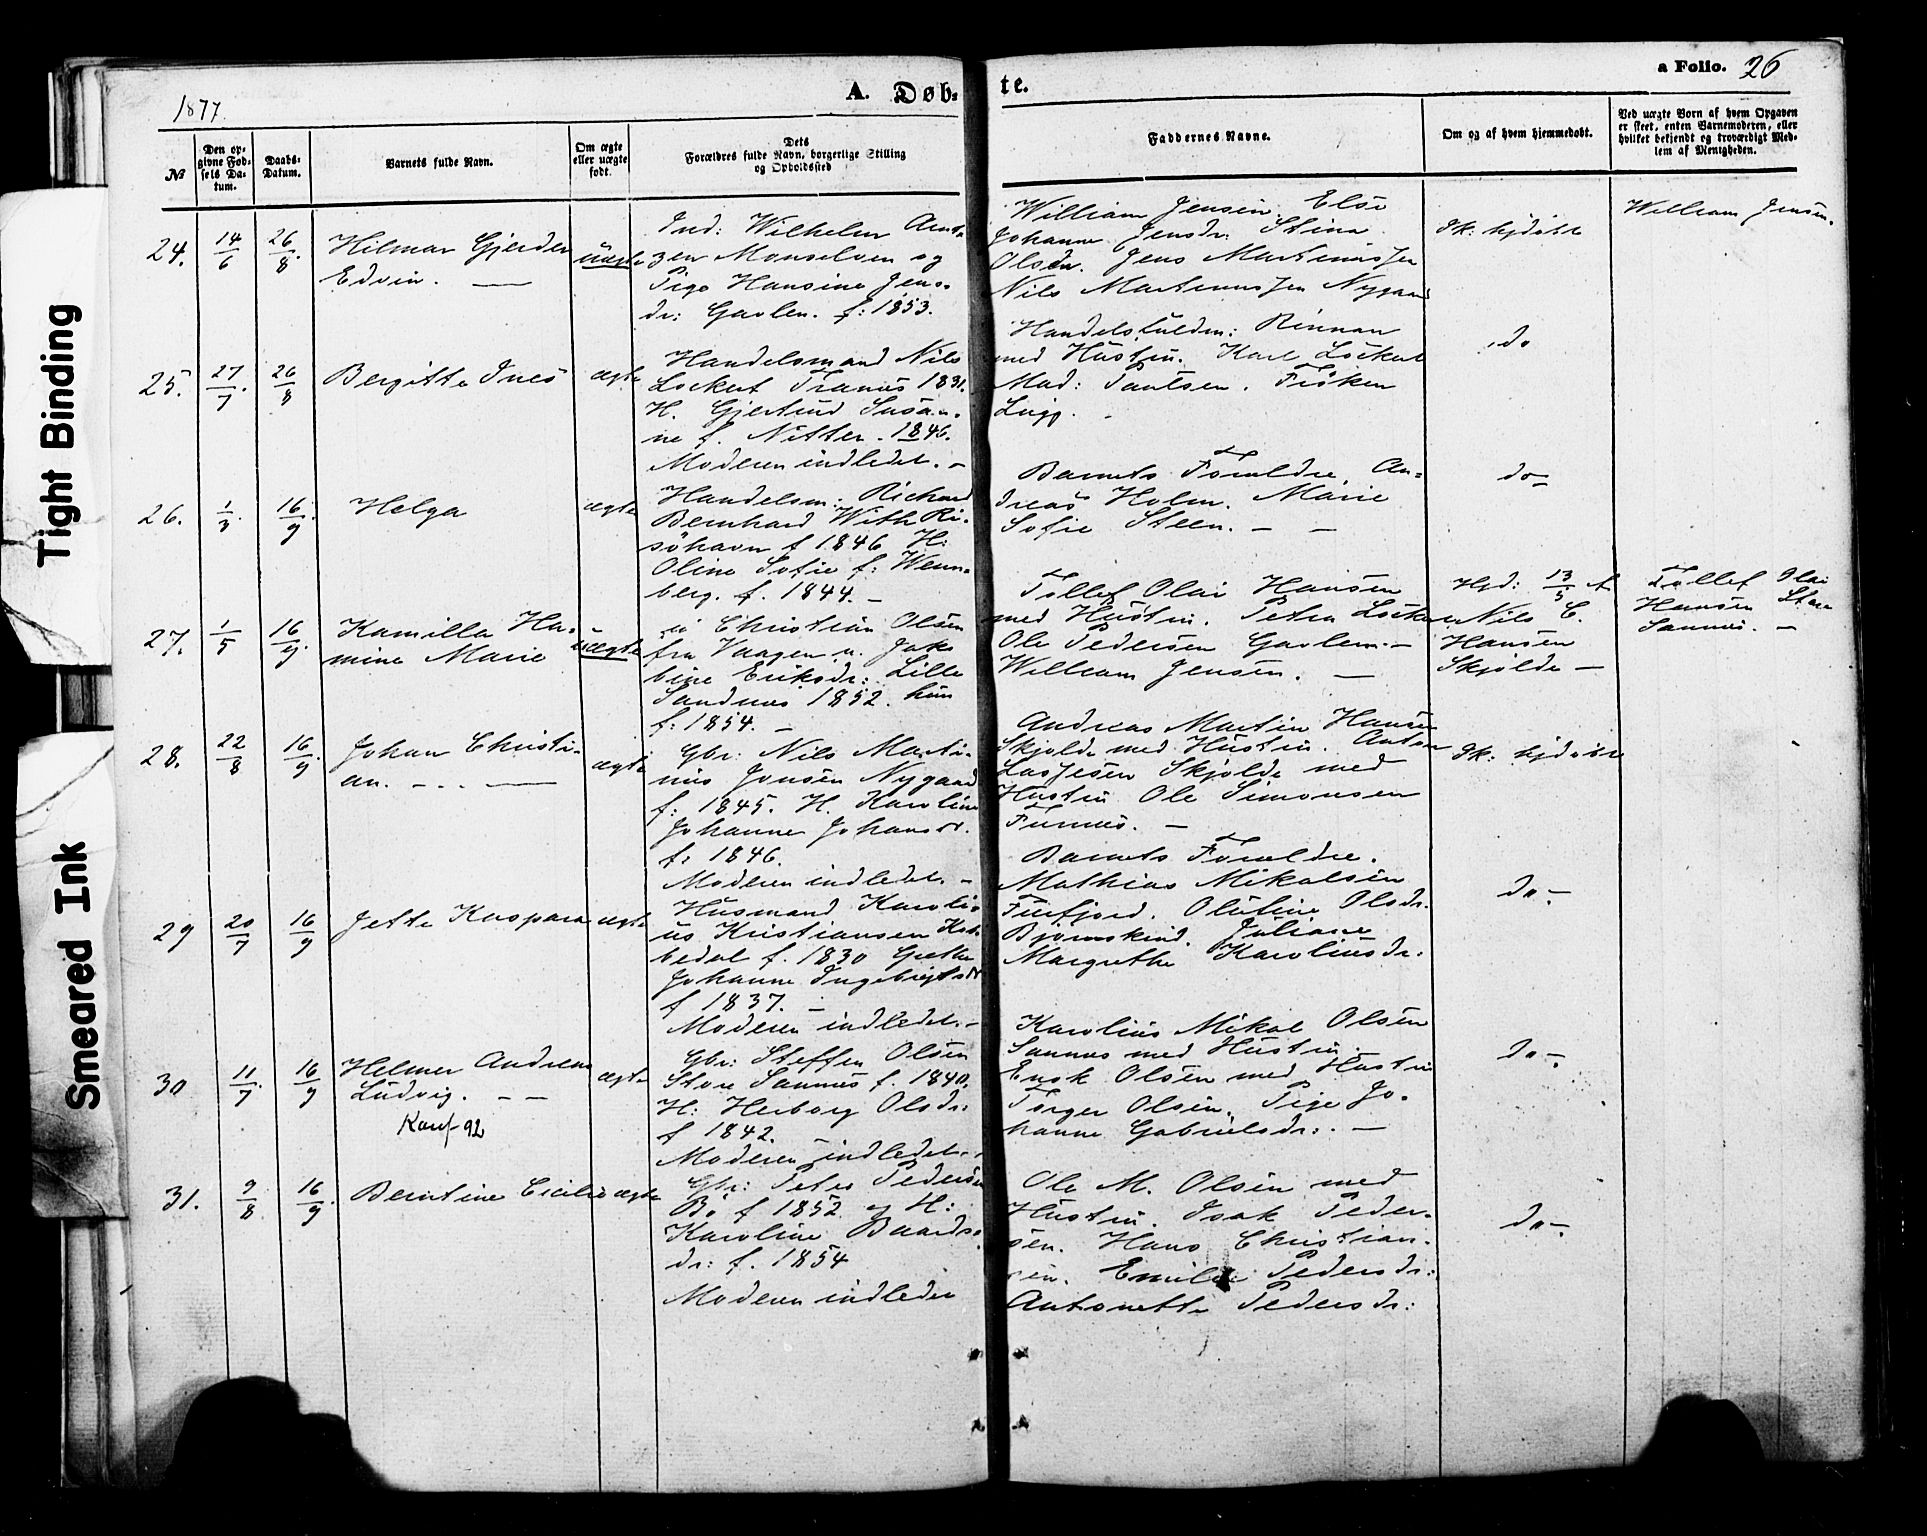 Tight Binding
Smeared Ink
1877.
A. Døb-
te.
a Folio. 26
No
Den op-
givne Fød-
sels Da-
tum.
Daabs-
Datum.
Barnets fulde Navn.
Om ægte
eller uægte
født.
Dets
Forældres fulde Navn, borgerlige Stilling
og Opholdssted
Faddernes Navne.
Om og af hvem hjemmedøbt.
Ved uægte Børn af hvem Opgaven
er skeet, enten Barnemoderen, eller
hvilket bekjendt og troværdigt Med-
lem af Menigheden.
24.
14/6
26/8
Hilmar Gjerder
Edvin. —
uægte
Ind: Wilhelm Arnt-
zen Monselven og
Pige Hansine Jens-
dr: Gavlen. f: 1853.
William Jensen. Else
Johanna Jensdr. Stina
Olsdr. Jens Martinussen
Nils Martinussen Nygaard
Sk: hjdøbt
William Jensen.
25.
27/7
26/8
Bergitte Ines
ægte
Handelsmand Nils
Lockert Tranøs 1831.
H. Gjertrud Susan-
ne f. Nitter. 1846.
Moderen indledet. —
Handelsfuldm: Rinnan
med Hustru. Karl Lockert
Mad: Paulsen. Frøken
do
26.
1/3
16/9
Helga
ægte
Handelsm: Richard
Bernhard With Ri-
söhavn f 1846 H:
Oline Sofie f: Wenn-
berg. f. 1844. —
Barnets Forældre. An-
dreas Holm. Marie
Sofie Steen. — —
do —
27.
1/5
16/9
Kamilla Ha-
mine Marie
uægte
u Christian Olsen
fra Vaagen u. Jako
bine Eriksdr: Lille
Sandnes 1852. hun
f: 1854. —
Tollef Olai Hansen
med Hustru. Petra Lockert
Ole Pedersen Gavlen. —
William Jensen. —
Hjd: 13/5 af
Nils C.
Hansen
Skjolde —
Tollef Olai
Hansen Store
Sannes. —
28.
22/8
16/9
Johan Christi-
an. — . . —
ægte
Gbr: Nils Marti-
nus Jensen Nygaard
f: 1845. H. Karoline
Johanne Johansdr.
f: 1846.
Moderen indledet. —
Andreas Martin Hansen
Skjolde med Hustru. Anton
Lassesen Skjolde med
Hustru Ole Simonsen
Furnes. —
Sk: hjdøbt
29
20/7
16/9
Jette Kaspara
ægte
Husmand Karoli-
us Kristiansen Kob-
bedal f. 1830 Grethe
Johanne Ingebrigtsdr
f 1837. —
Moderen indledet. —
Barnets Forældre.
Mathias Mikalsen
Finfjord. Olufine Olsdr.
Bjørnskind. Juliane
Margrethe Karoliusdr.
do —.
30
11/7
16/9
Helmer Andreas
Ludvig. — —
Konf 92
ægte
Gbr: Steffen Olsen
Store Sannes f. 1840.
H: Herborg Olsdr:
f 1842. —
Moderen indledet. .
Karolius Mikal Olsen
Sannes med Hustru.
Enok Olsen med Hustru
Torger Olsen. Pige Jo-
hanne Gabrielsdr:. —
do —.
31.
9/8
16/9
Berntine Cicilie
ægte
Gbr: Peter Pedersen
Bö f 1852 og H:
Karoline Baards-
dr: f. 1854
Moderen indledet
Ole M. Olsen med
Hustru. Isak Peder-
sen. Hans Christian-
sen. Emilie Pedersdr:
Antonette Pedersdr:
do —.